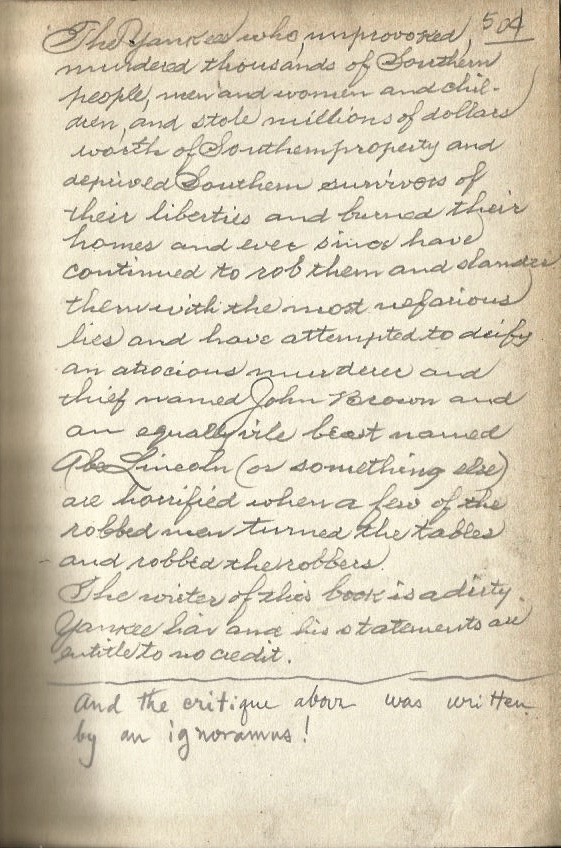 504
The Yankees who, unprovoked,
murdered thousands of Southern
people, men and women and chil-
dren, and stole millions of dollars
worth of Southern property and
deprived Southern survivors of
their liberties and burned their
homes and ever since have
continued to rob them and slander
them with the most nefarious
lies and have attempted to deify
an atrocious murderer and
thief named John Brown and
an equally vile beast named
Abe Lincoln (or something else)
are horrified when a few of the
robbed men turned the tables
and robbed the robbers.
The writer of this book is a dirty
Yankee liar and his statements are
entitle to no credit.
And the critique above was written
by an ignoramus!